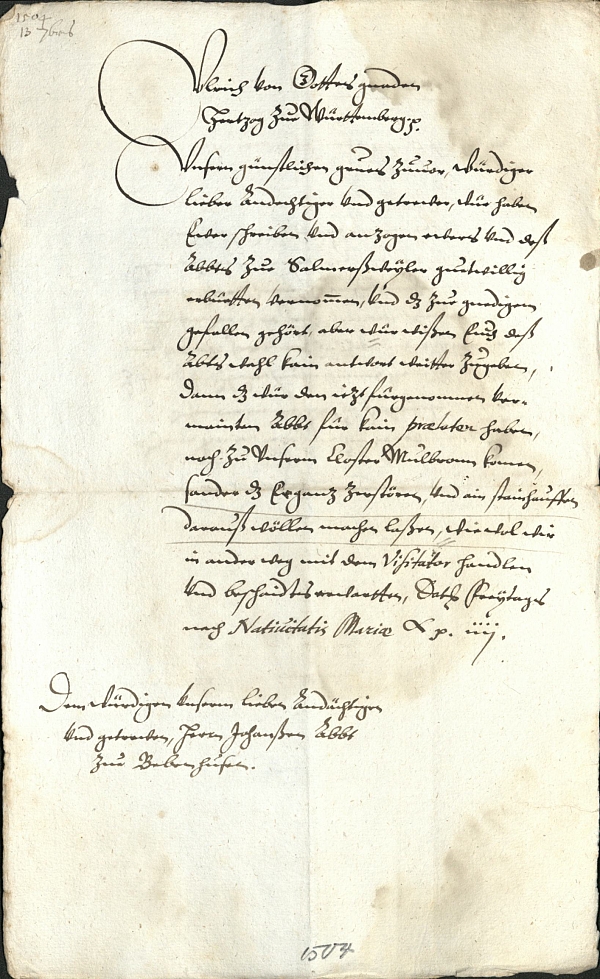 1504
13 7bris
Vlrich von Gottes gnaden
Hertzog Zue Württemberg p.
Vnsern günstlichen grues Zuuor, würdiger
lieber Andechtiger vnd getrewer, wür haben
Ewer schreiben vnd anzogen ewers vnd deß
Abbts Zue Salmerßweyler guetwillig
erbüetten vernommen, vnd dz zue gnedigem
gefallen gehört, aber wür wißen Euch deß
Abts wahl kain antwort weitter Zugeben,
dann dz wür den ietzt fürgenommen ver-
mainten Abbt für kain prælaten haben,
noch Zu Vnserm Closter Mulbronn komen,
sonder dz Ee gantz Zerstören, vnd ain stainhauffen
darauß wöllen machen laßen, wiewol wir
in ander weg mit dem Visitator handlen
vnd beschaidts erwartten, Dat. Freytags
nach Natiuitatis Mariæ & p. iiij.
Dem würdigen vnserm lieben Andächtigen
vnd getrewen, Herrn Johanßen Abbt
zue Bebenhusen.
1504